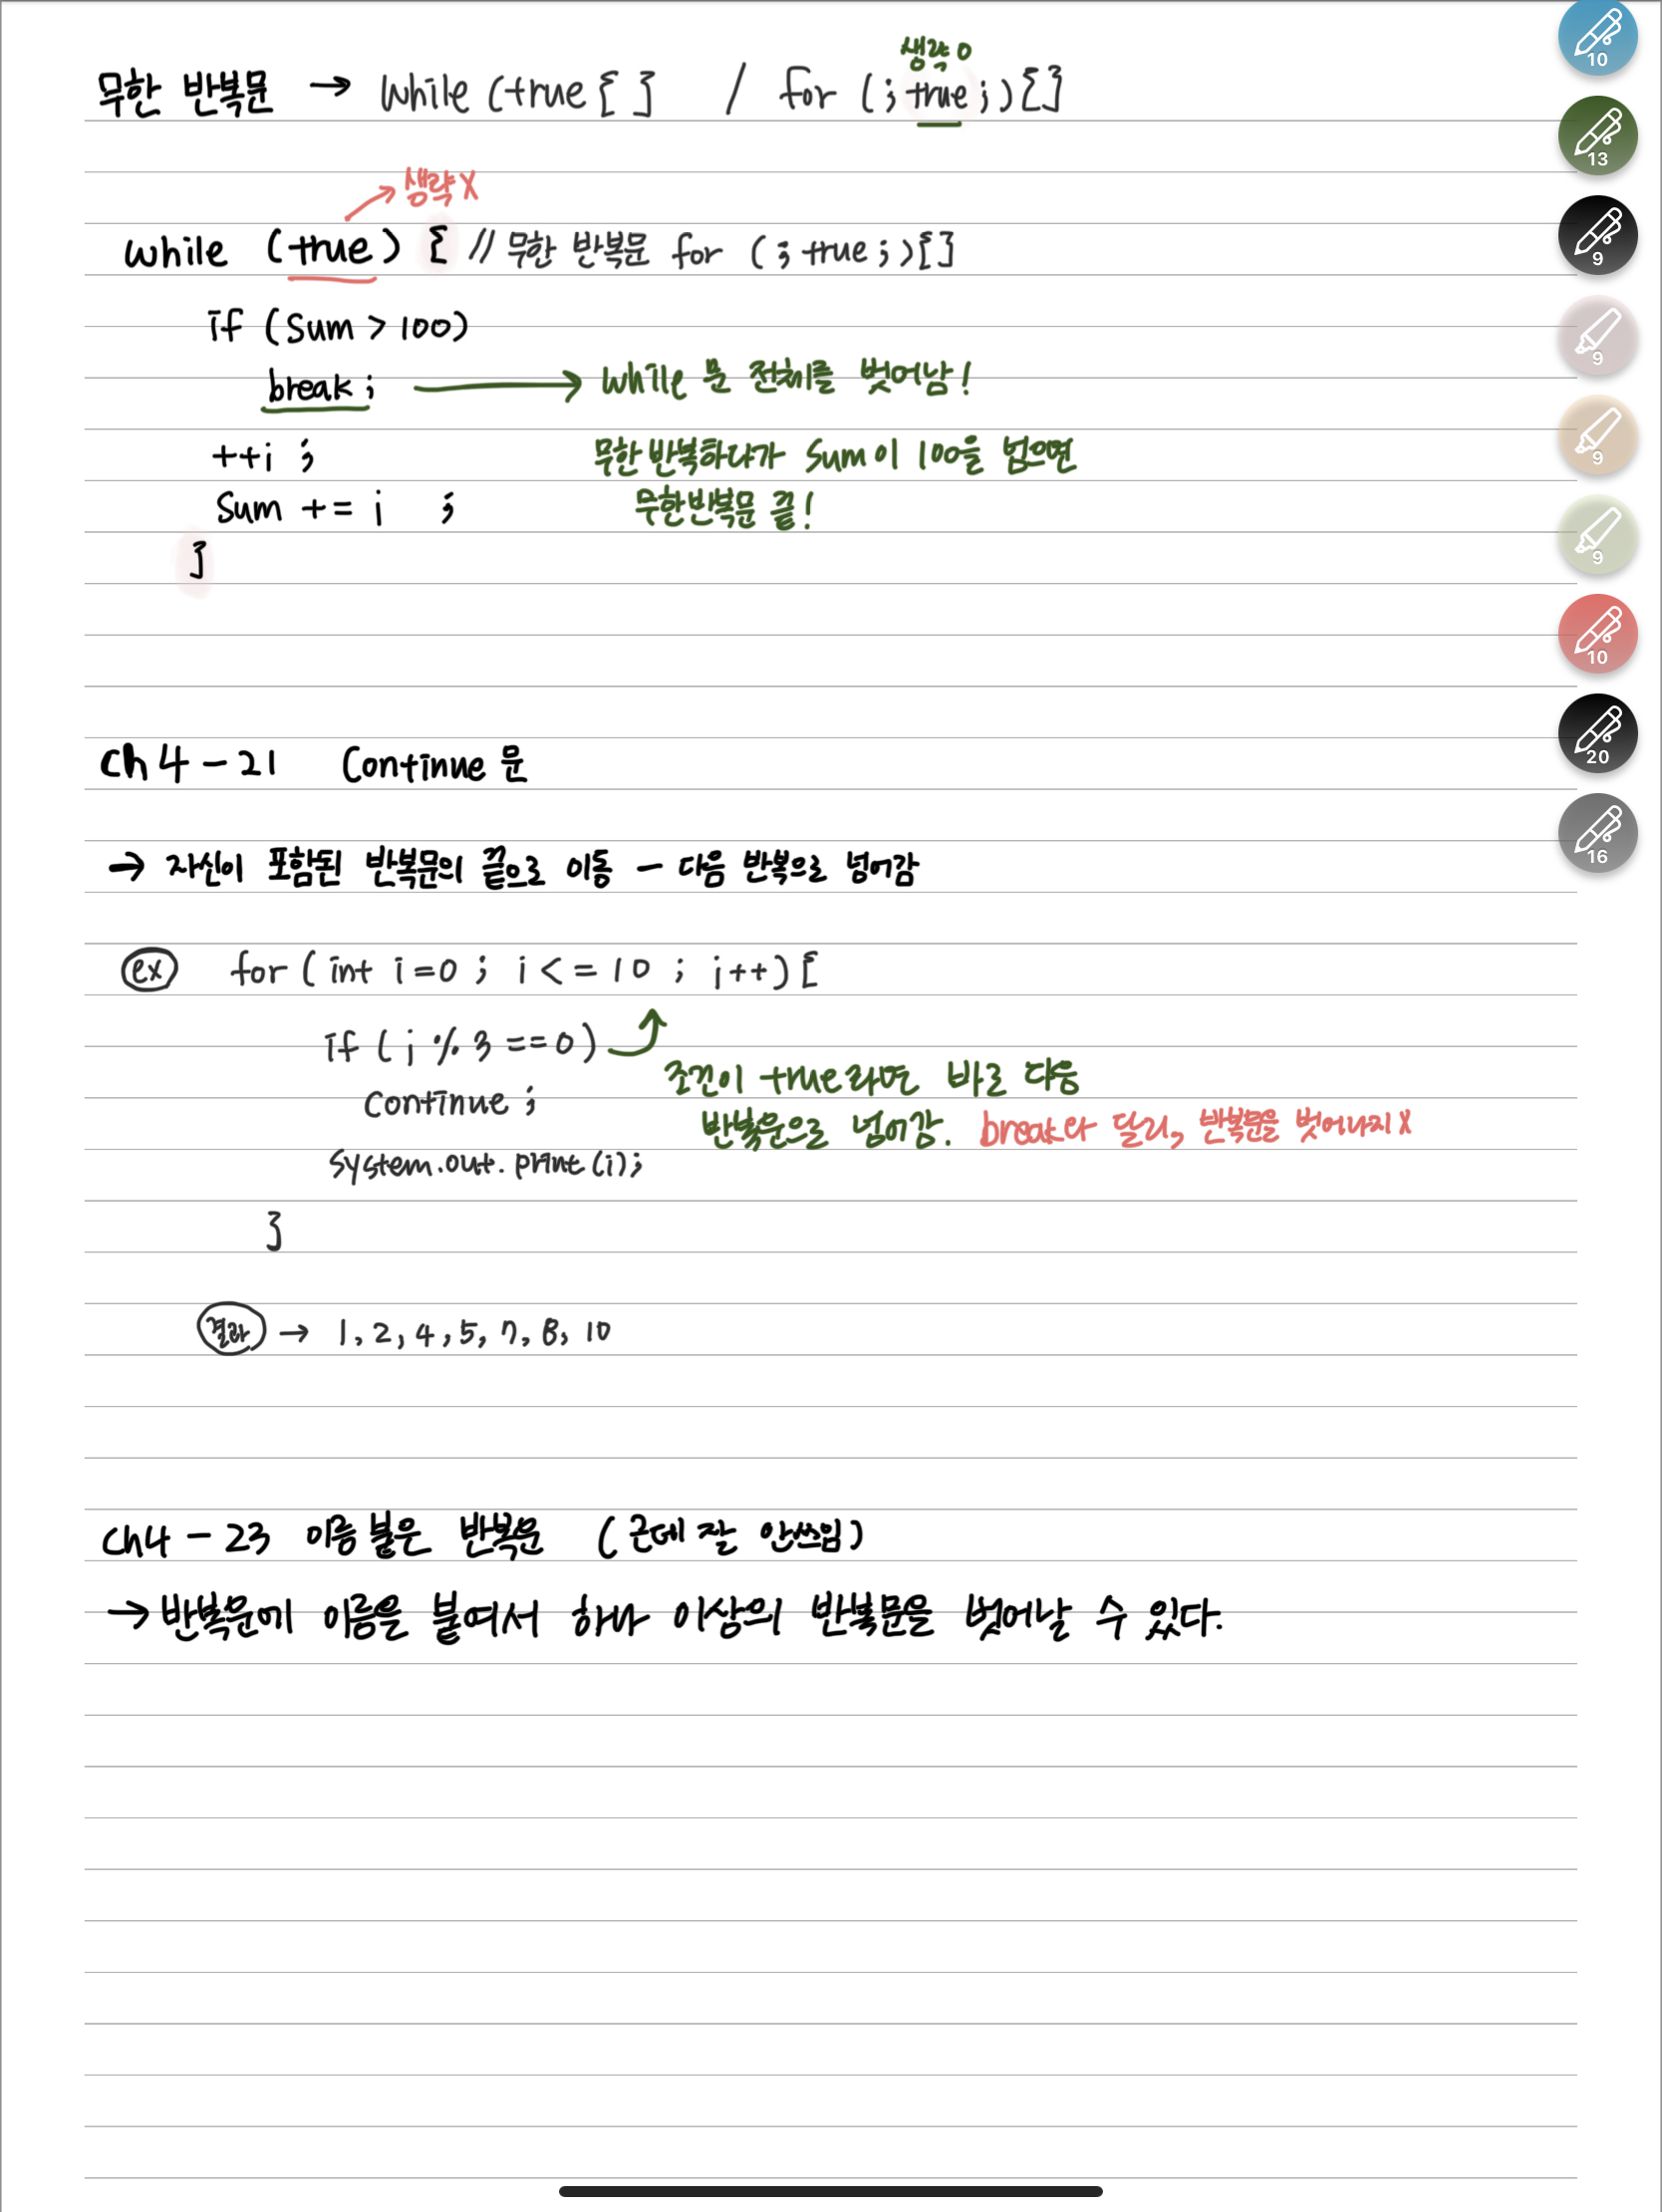 생략 O
무한 반복문 → While (true { } / for (; true ;) { }
생략 X
while (true) { // 무한 반복문 for (; true ;) { }
if (Sum > 100)
break; → While 문 전체를 벗어남!
++i ; 무한 반복하다가 Sum이 100을 넘으면
Sum += i ; 무한반복문 끝!
}
ch 4 - 21 Continue 문
→ 자신이 포함된 반복문의 끝으로 이동 - 다음 반복으로 넘어감
ex for ( int i = 0 ; i <= 10 ; i++) {
if ( i % 3 == 0 )
조건이 true라면 바로 다음
continue ;
반복문으로 넘어감. break와 달리, 반복문을 벗어나지 X
System.out.print(i);
}
결과 → 1, 2, 4, 5, 7, 8, 10
ch4 - 23 이름 붙은 반복문 (근데 잘 안쓰임)
→ 반복문에 이름을 붙여서 하나 이상의 반복문을 벗어날 수 있다.
10
13
9
9
9
9
10
20
16